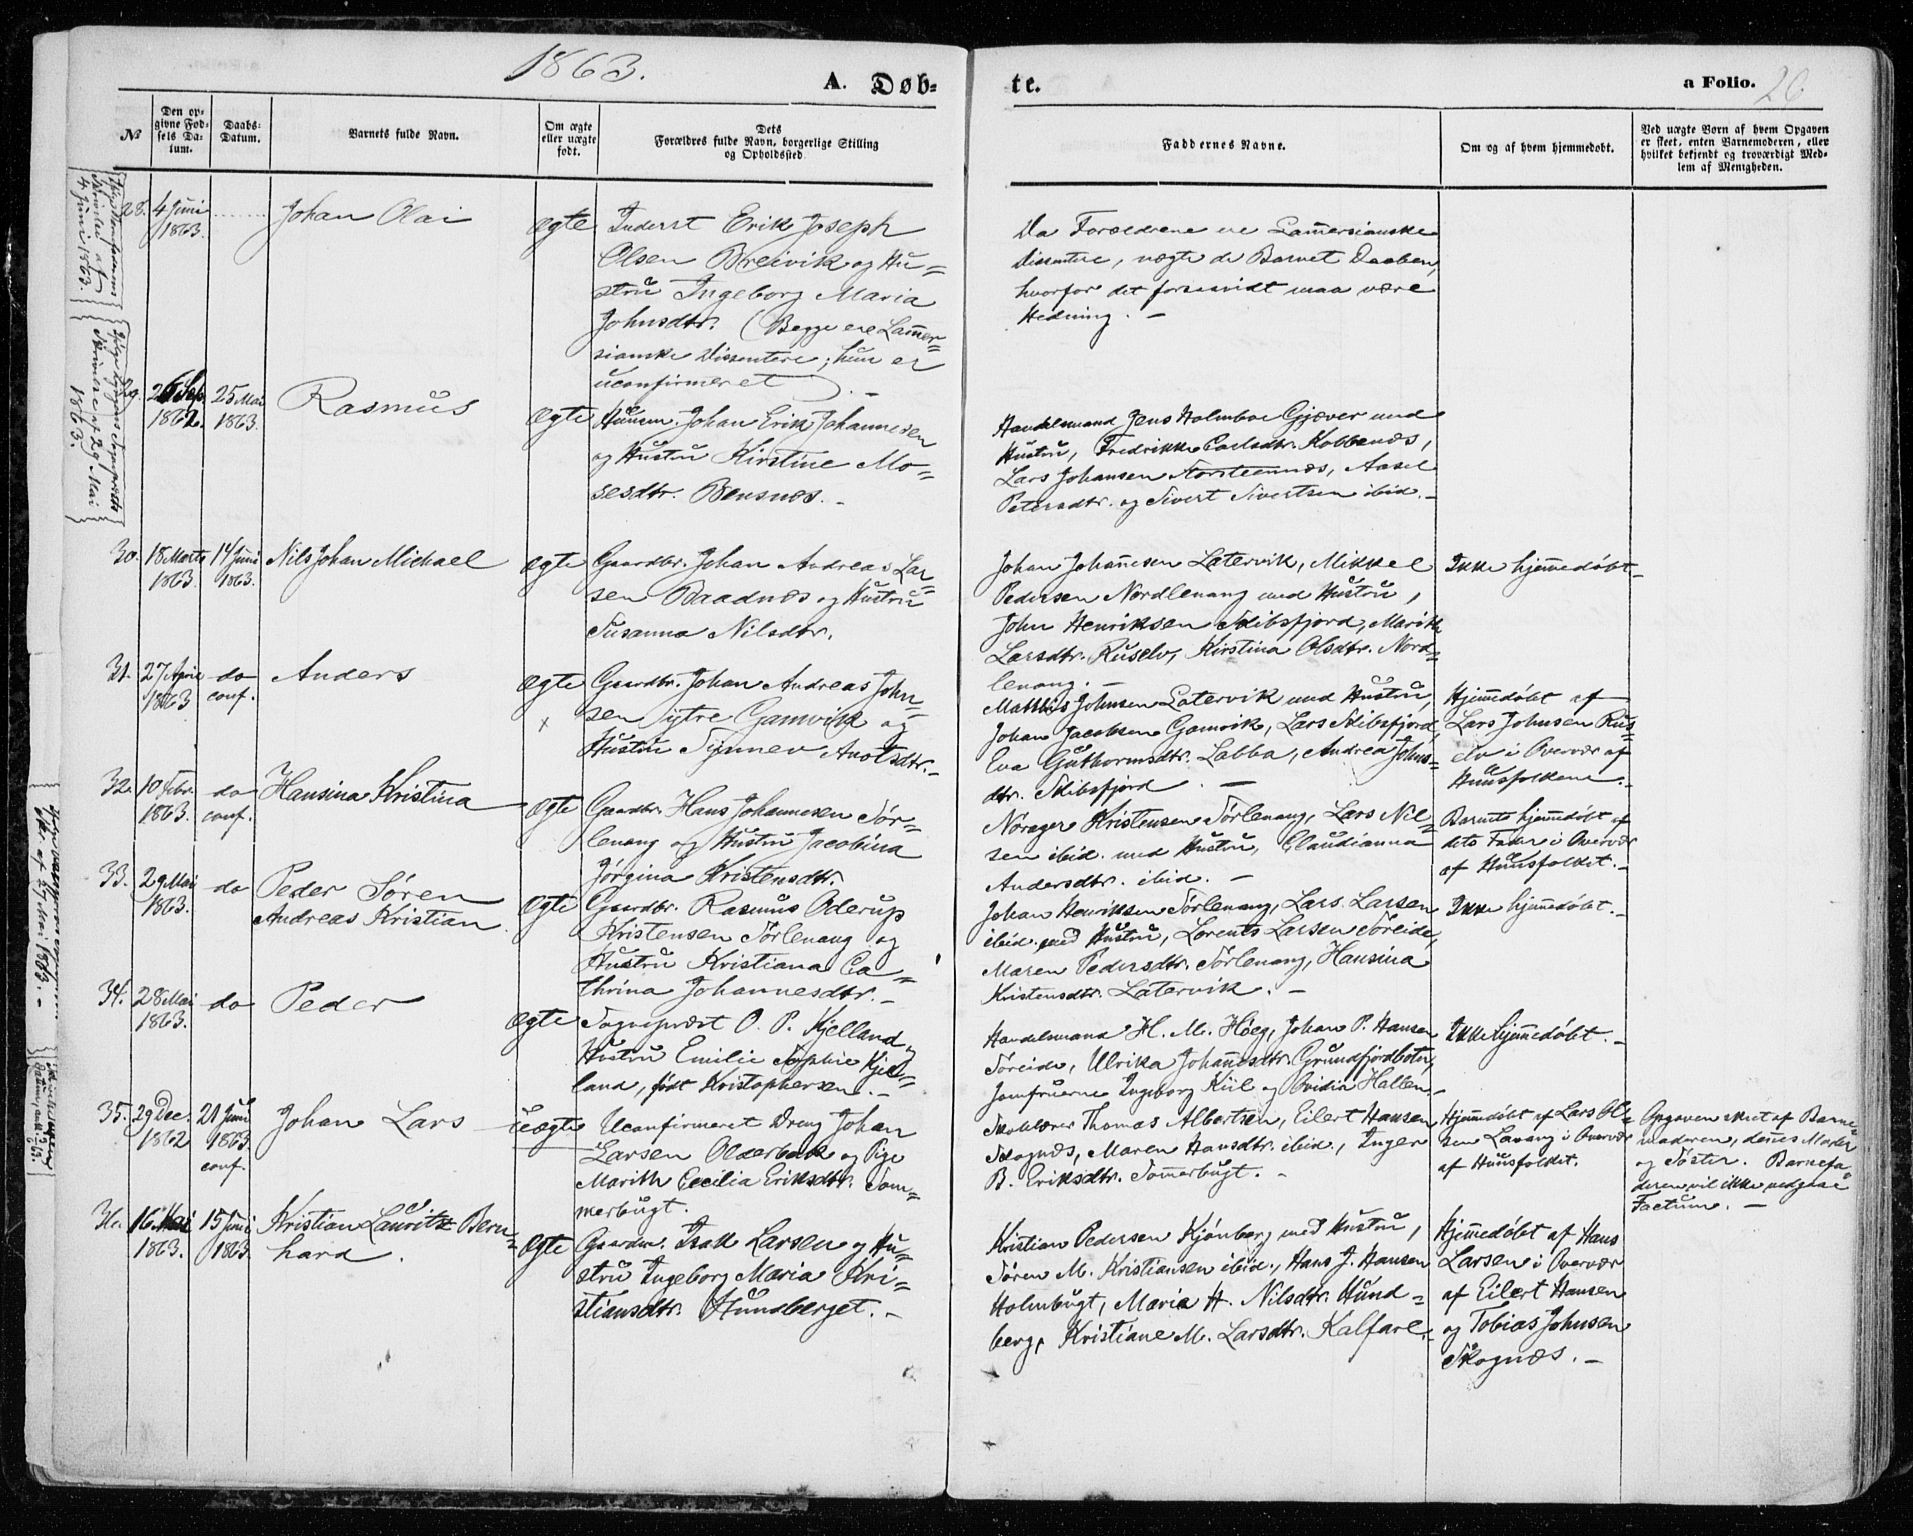 1863.
A. Døb-
te.
a Folio. 26
№
Den op-
givne Fød-
sels Da-
tum.
Daabs-
Datum.
Barnets fulde Navn.
Om ægte
eller uægte
født.
Dets
Forældres fulde Navn, borgerlige Stilling
og Opholdssted
Faddernes Navne.
Om og af hvem hjemmedøbt.
Ved uægte Børn af hvem Opgaven
er skeet, enten Barnemoderen, eller
hvilket bekjendt og troværdigt Med-
lem af Menigheden.
28.
4 Juni
1863.
Johan Olai
Ægte
Inderst Erik Joseph
Olsen Breivik og Hu-
stru Ingeborg Maria
Johnsdtr. (Begge ere Lam̄er-
sianske Dissentere; hun er
uconfirmeret).
Da Forældrene ere Lam̄ersianske
Dissentere, nægte de Barnet Daaben,
hvorfor det forsaavidt maa være
Hedning. –
29.
26 Sep.
1862.
25 Mai
1863.
Rasmus
Ægte
Huusm. Johan Erik Johannesen
og Hustru Kirstine Mo-
sesdtr. Bensnæs. –
Handelsmand Jens Holmboe Gjæver med
Hustru, Fredrikke Carlsdtr. Kobbenæs,
Lars Johansen Storsteennæs, Aasel
Petersdtr. og Sivert Sivertsen ibid. –
30.
18 Marts
1863.
14 Juni
1863.
Nils Johan Michael
Ægte
Gaardbr. Johan Andreas Lar-
sen Baadnæs og Hustru
Susanna Nilsdtr.
Johan Johan̄esen Latervik, Mikkel
Pedersen Nordlenang med Hustru,
John Henriksen Skibsfjord, Marith
Larsdtr. Ruselv, Kirstina Olsdtr. Nord-
lenang. –
Ikke hjem̄edøbt –
31.
27 April
1863
do
conf.
Anders
Ægte
×
Gaardbr. Johan Andreas John-
sen Ytre Gamvik og
Hustru Synnev Arolsdtr. –
Matthis Johnsen Latervik med Hustru,
Johan Jacobsen Gamvik, Lars Skibsfjord,
Eva Guthormsdtr. Labba, Andrea Johns-
dtr. Skibsfjord. –
Hjem̄edøbt af
Lars Johnsen Rus-
elv i Overvær af
Huusfolkene. –
32.
10 Febr.
1863.
do
conf.
Hansina Kristina
Ægte
Gaardbr. Hans Johannesen Sør-
lenang og Hustru Jacobina
Jørgina Kristensdtr.
Norager Kristensen Sørlenang, Lars Nil-
sen ibid. med Hustru, Claudianna
Andersdtr. ibid. –
Barnets hjem̄edøbt af
dets Fader i Overvær
af Huusfolket. –
33.
29 Mai
1863.
do
Peder Søren
Andreas Kristian
Ægte
Gaardbr. Rasmus Oderup
Kristensen Sørlenang og
Hustru Kristiana Ca-
thrina Johannesdtr. –
Johan Henriksen Sørlenang, Lars Larsen
ibid. med Hustru, Lorents Larsen Soreide,
Maren Pedersdtr. Sørlenang, Hansina
Kristensdtr. Latervik. –
Ikke hjem̄edøbt. –
34.
28 Mai
1863.
do
Peder
Ægte
Sognepræst O. P. Kjelland og
Hustru Emilie Sophie Kjel-
land, født Kristophersen. –
Handelsmand H. M. Høeg, Johan P. Hansen
Soreide, Ulrika Johan̄esdtr. Grundfjordbotn,
Jomfruerne Ingeborg Kiil og Ovidia Hallen –
Ikke hjem̄edøbt. –
35.
29 Dec.
1862
21 Juni
1863
conf.
Johan Lars
Uægte
Uconfirmeret Dreng Johan
Larsen Olderbak og Pige
Marith Cecilia Eriksdtr. Som-
merbugt.
Skolelærer Thomas Albertsen, Eilert Hansen
Skognæs, Maren Hansdtr. ibid., Inger
B. Eriksdtr. Som̄erbugt. –
Hjem̄edøbt af Lars Ol-
sen Lavang i Overvær
af Huusfolket.
Opgaven skeet af Barne-
moderen, den̄es Moder
og Søster. Barnefa-
deren vil ikke vedgaae
Factum. –
36.
16 Mai
1863.
15 Juni
1863.
Kristian Lauritz Bern-
hard.
Ægte
Gaardm. Isak Larsen og Hu-
stru Ingeborg Maria Kri-
stiansdtr. Hundberget. –
Kristian Pedersen Kjønborg med Hustru,
Søren M. Kristiansen ibid., Hans J. Hansen
Holmbugt, Maria H. Nilsdtr. Hund-
berg, Kristiane M. Larsdtr. Kalfare. –
Hjem̄edøbt af Hans
Larsen i Overvær
af Eilert Hansen
og Tobias Johnsen
Skognæs. –
4 Juni 1863.
29. Mai
1863.